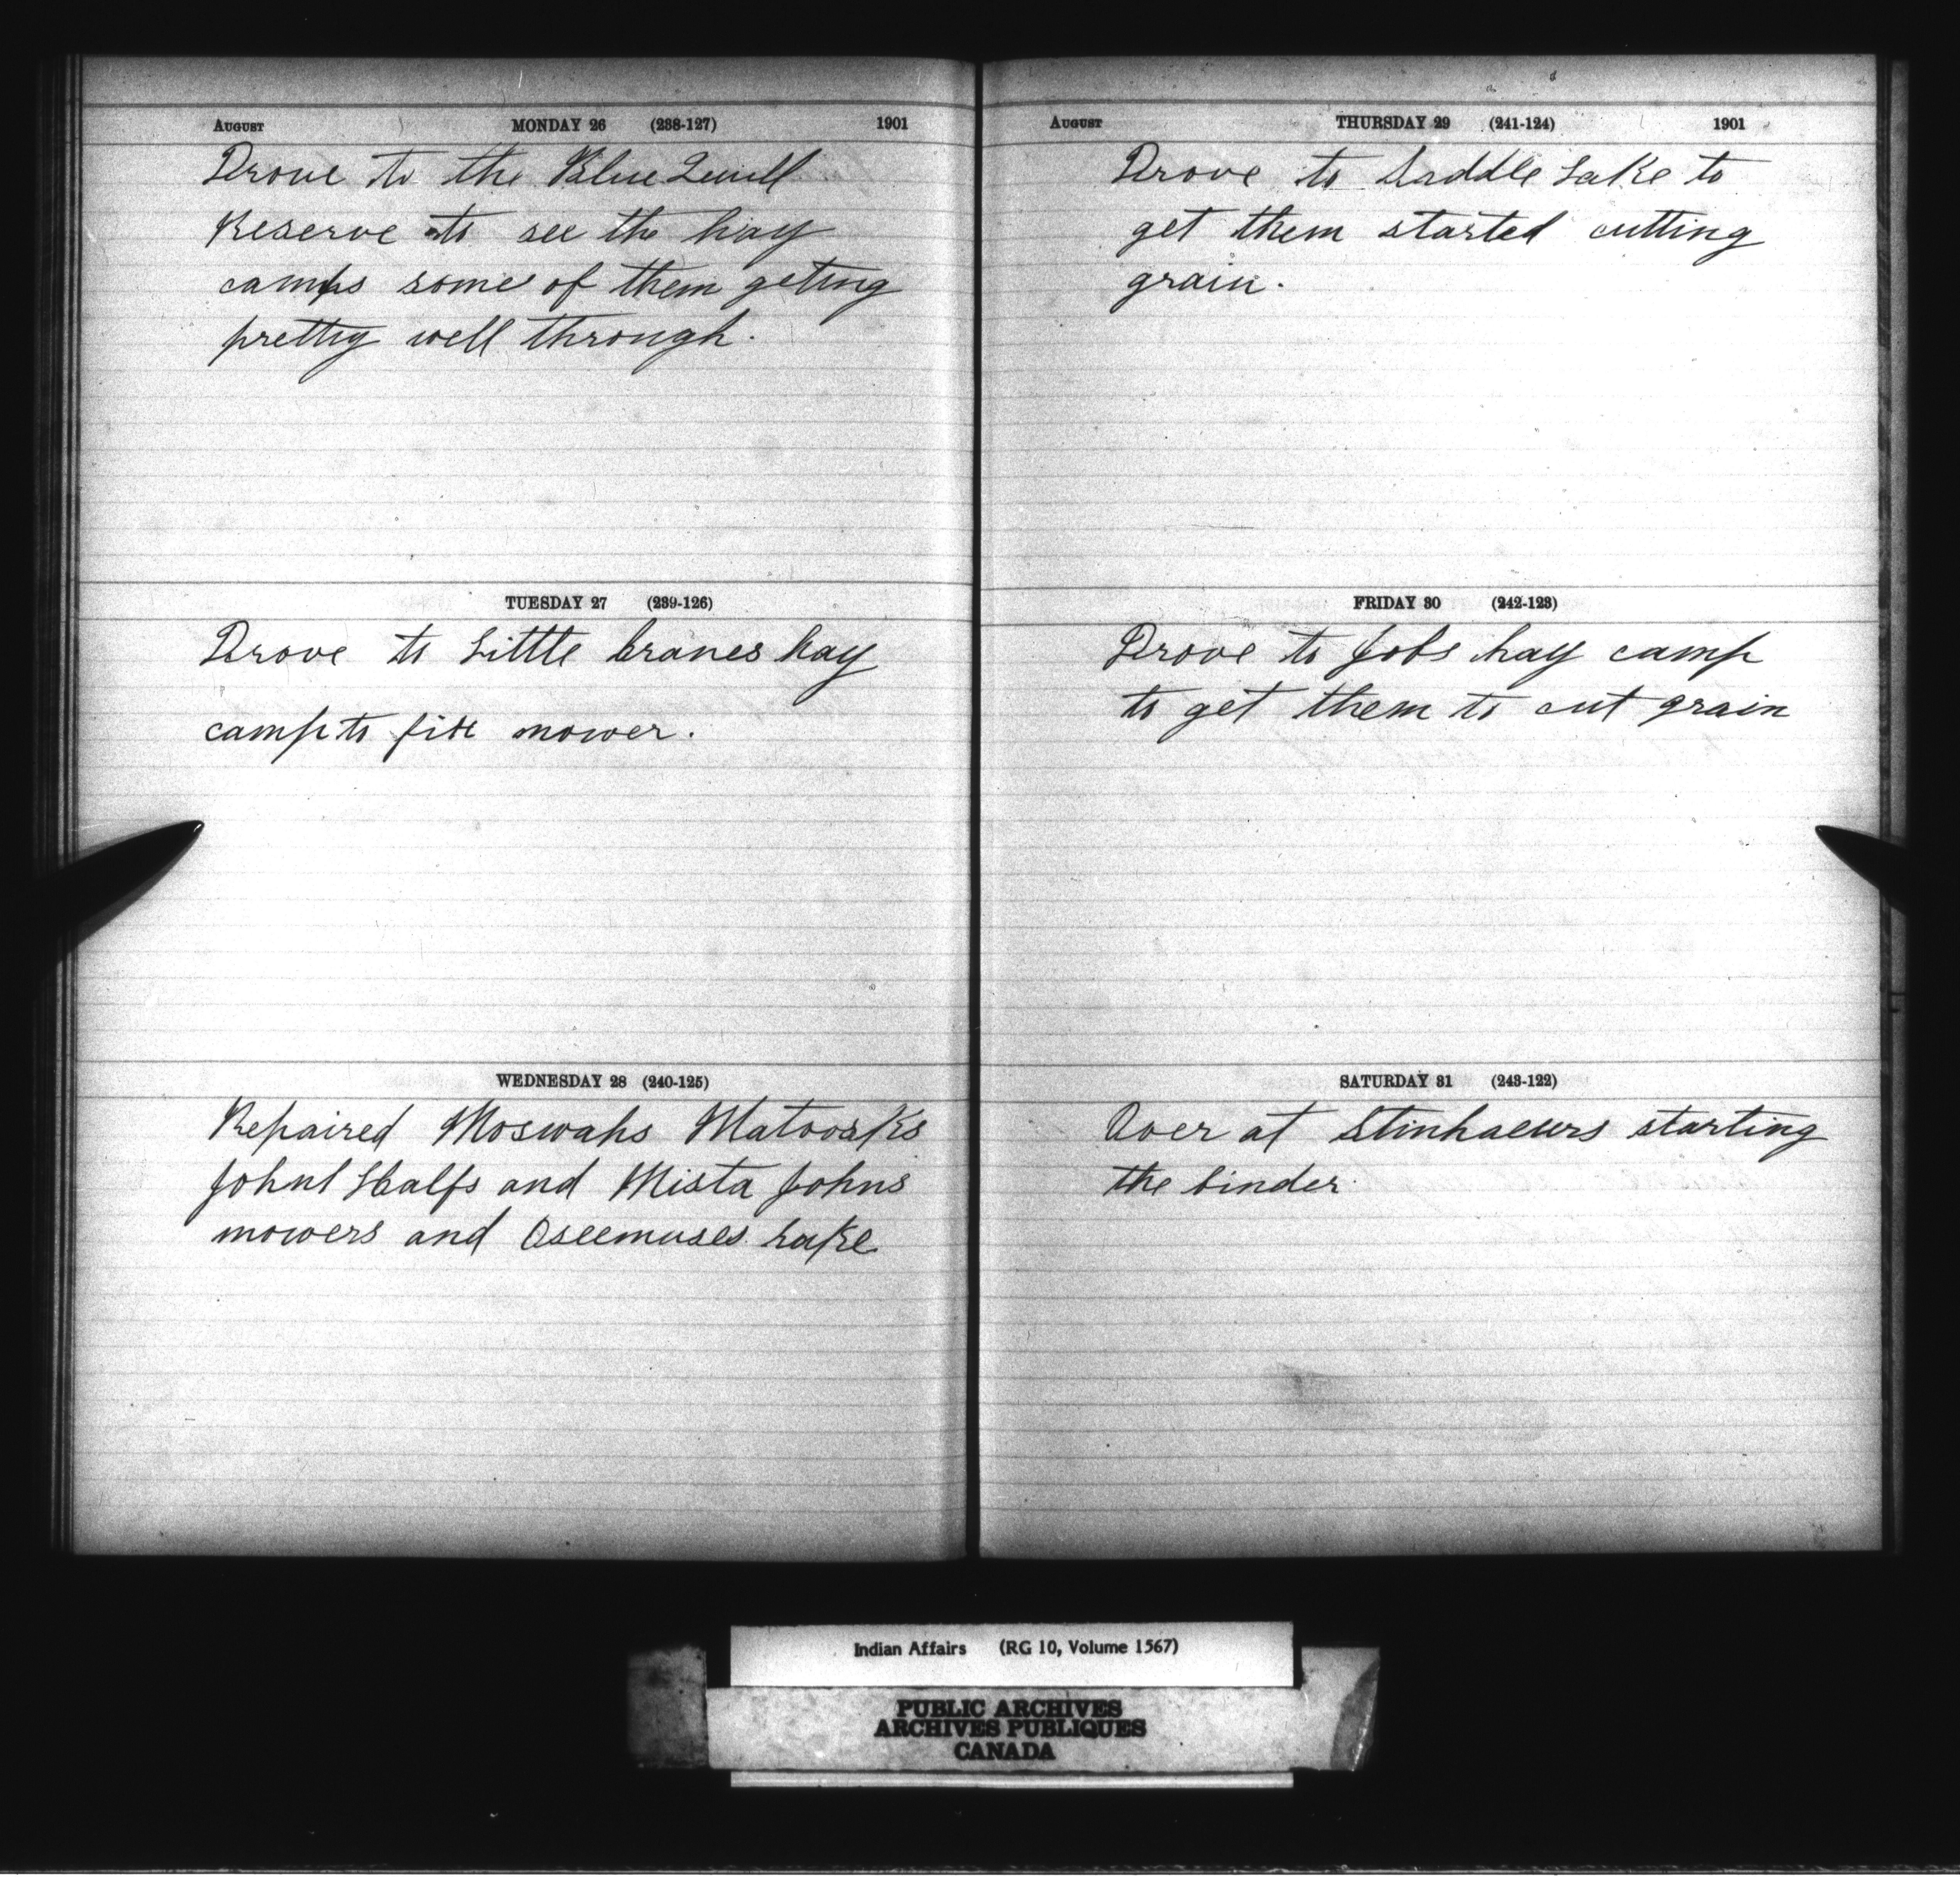 AUGUST MONDAY 26 (238-127) 1901
Drove to the Blue Quill
Reserve to see the hay
camps some of them geting
pretty well through.
TUESDAY 27 (239-126)
Drove to Little Cranes hay
camp to fix mower.
WEDNESDAY 28 (240-125)
Repaired Moswahs Matoosks
John Halfs and Mista Johns
mowers and Oseemuses rake
AUGUST THURSDAY 29 (241-124) 1901
Drove to Saddle Lake to
get them started cutting
grain.
FRIDAY 30 (242-123)
Drove to Jobs hay camp
to get them to cut grain
SATURDAY 31 (243-122)
Over at Stinhaeurs starting
the binder
Indian Affairs (RG 10, Volume 1567)
PUBLIC ARCHIVES
ARCHIVES PUBLIQUES
CANADA